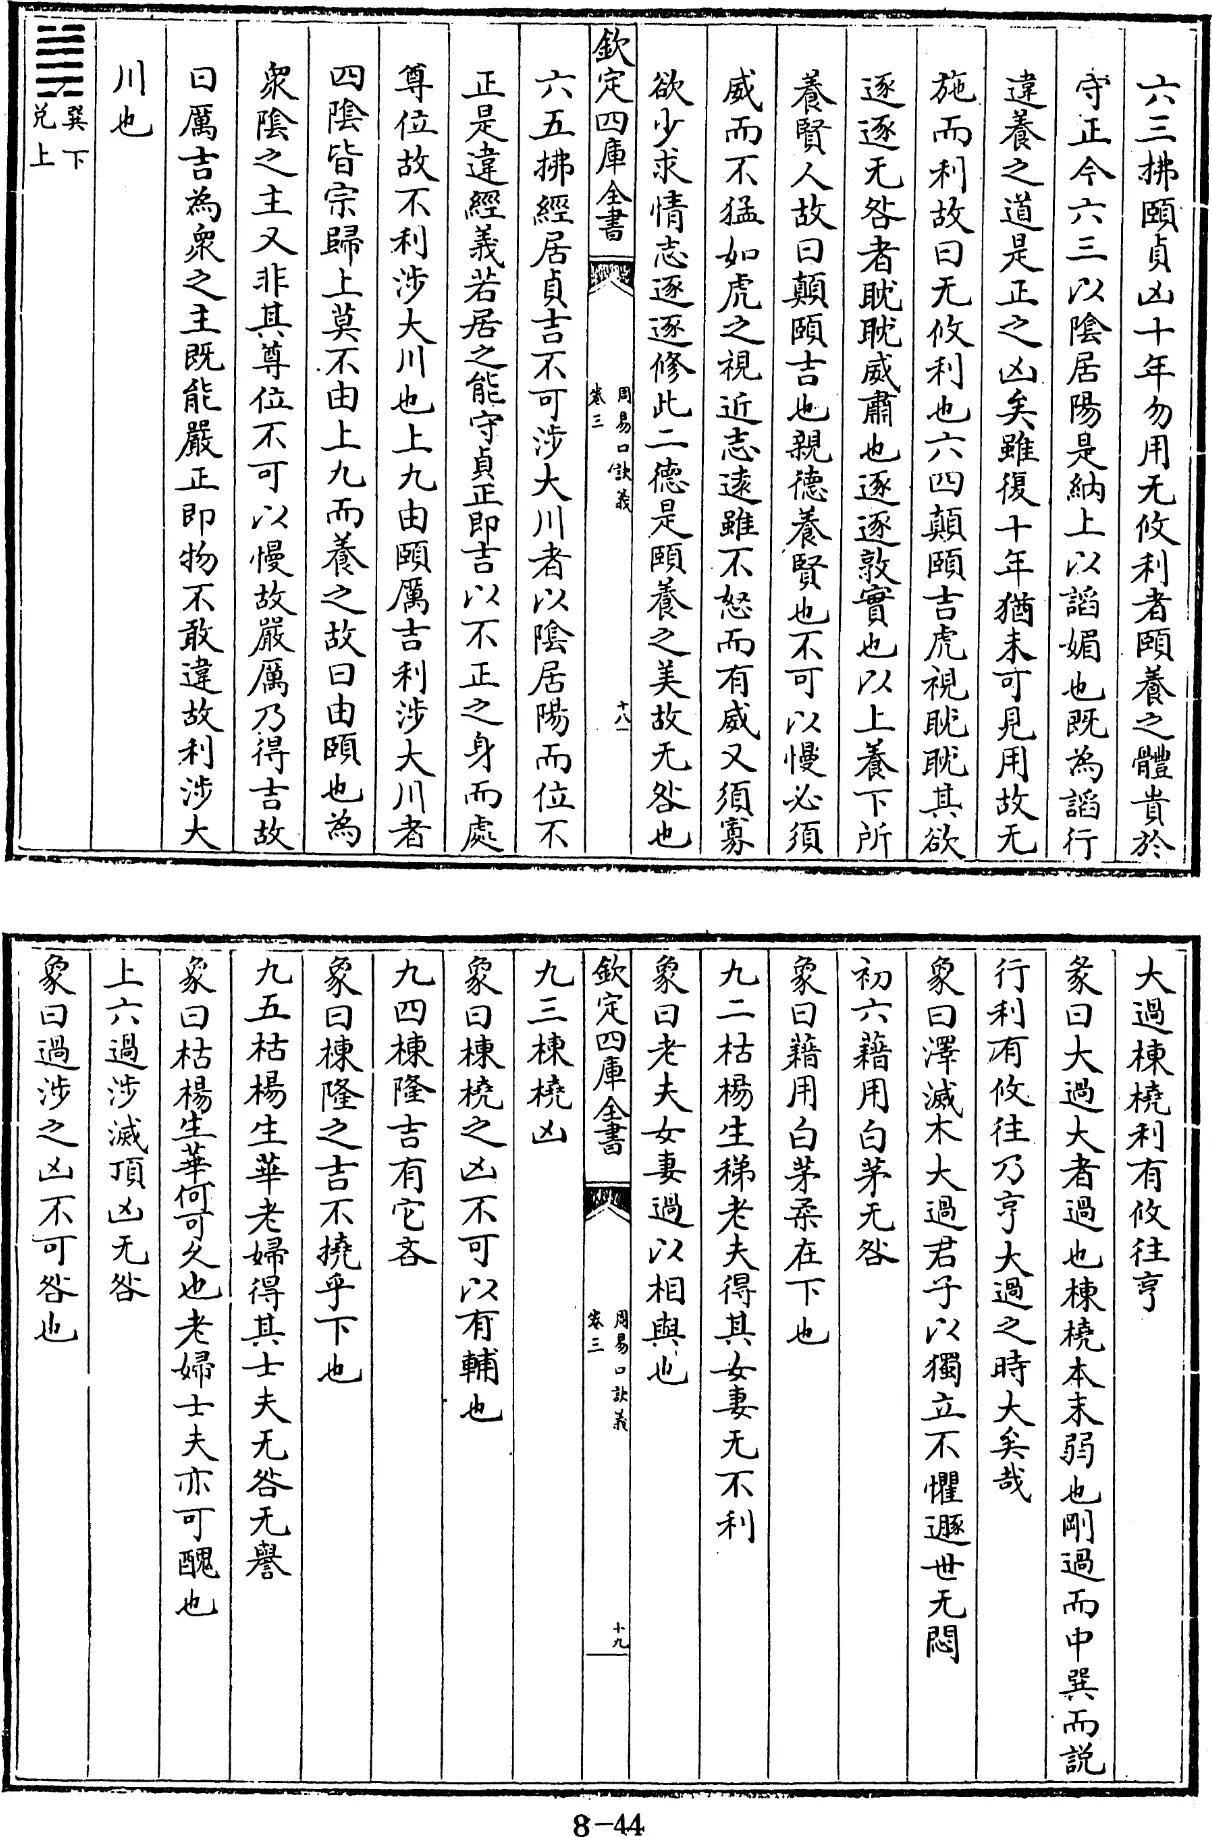 六三拂頤貞凶十年勿用无攸利者頤養之體貴於
守正今六三以陰居陽是納上以諂媚也既為諂行
違養之道是正之凶矣雖復十年猶未可見用故无
施而利故曰无攸利也六四顛頤吉虎視眈眈其欲
逐逐无咎者眈眈威肅也逐逐敦實也以上養下所
養賢人故曰顛頤吉也親德養賢也不可以慢必須
威而不猛如虎之視近志遠雖不怒而有威又須寡
欲少求情志逐逐修此二德是頤養之美故无咎也
欽定四庫全書
周易口訣義
卷三
十八
六五拂經居貞吉不可涉大川者以陰居陽而位不
正是違經義若居之能守貞正即吉以不正之身而處
尊位故不利涉大川也上九由頤厲吉利涉大川者
四陰皆宗歸上莫不由上九而養之故曰由頤也為
衆陰之主又非其尊位不可以慢故嚴厲乃得吉故
曰厲吉為衆之主既能嚴正即物不敢違故利涉大
川也
巽下
兌上
大過棟橈利有攸往亨
彖曰大過大者過也棟橈本末弱也剛過而中巽而説
行利有攸往乃亨大過之時大矣哉
象曰澤滅木大過君子以獨立不懼遯世无悶
初六藉用白茅无咎
象曰藉用白茅柔在下也
九二枯楊生稊老夫得其女妻无不利
象曰老夫女妻過以相與也
欽定四庫全書
周易口訣義
卷三
十九
九三棟橈凶
象曰棟橈之凶不可以有輔也
九四棟隆吉有它吝
象曰棟隆之吉不撓乎下也
九五枯楊生華老婦得其士夫无咎无譽
象曰枯楊生華何可久也老婦士夫亦可醜也
上六過涉滅頂凶无咎
象曰過涉之凶不可咎也
8-44